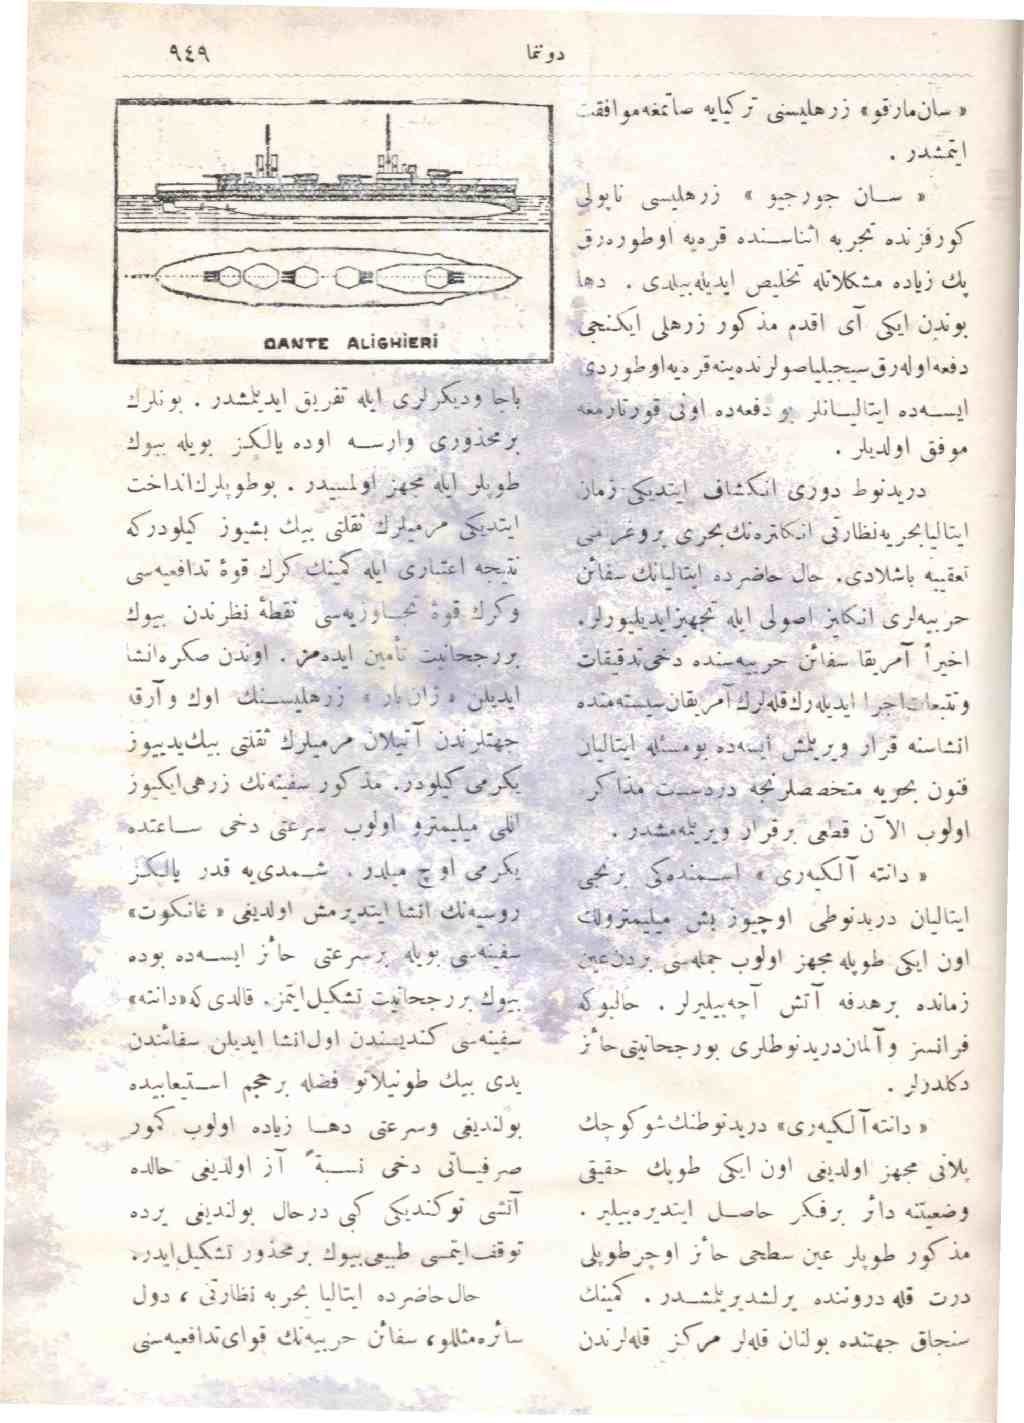 دوننما
٩٤٩
« سان مارقو » زرهليسنى تركيايه صاتمغه موافقت
ايتمشدر .
« سان جورجيو » زرهليسى ناپولى
كورفزنده تجربه اثناسنده قرهيه اوطورهرق
پك زياده مشكلاتله تخليص ايديلهبيلدى . دها
بوندن ايكى آى اقدم مذكور زرهلى ايكنجى
دفعه اولهرق سيجيليا صولرنده ينه قرهيه اوطوردى
ايسهده ايتاليانلر بو دفعهده اونى قورتارمغه
موفق اولديلر .
دريدنوط دورى انكشاف ايتديكى زمان
ايتاليا بحريه نظارتى انكلترهنك بحرى پروغرمنى
تعقيبه باشلادى. حال حاضرده ايتاليانك سفائن
حربيهلرى انكليز اصولى ايله تجهيز ايديليورلر.
اخيراً آمريقا سفائن حربيهسنده دخى تدقيقات
وتتبعات اجرا ايديلهرك قلهلرك آمريقان سيستهمنده
انشاسنه قرار ويريلمش ايسهده بومسئله ايتاليان
فنون بحريه متخصصلرنجه دردست مذاكره
اولوب الآن قطعى برقرار ويريلمهمشدر .
« دانته آلكيهرى » اسمندهكى برنجى
ايتاليان دريدنوطى اوچيوز بش ميليمترولك
اون ايكى طوپله مجهز اولوب جملهسى بردن عين
زمانده برهدفه آتش آچهبيليرلر . حالبوكه
فرانسز وآلمان دريدنوطلرى بورجحانيتى حائز
دكلدرلر .
« دانته آلكيهرى » دريدنوطنك شو كوچك
پلانى مجهز اولديغى اون ايكى طوپك حقيقى
وضعيتنه دائر برفكر حاصل ايتديرهبيلير .
مذكور طوپلر عين سطحى حائز اوچر طوپلى
درت قله دروننده يرلشديريلمشدر . كمينك
سنجاق جهتنده بولنان قلهلر مركز قلهلرندن
DANTE ALIGHIERI
باجا وديكرلرى ايله تفريق ايديلمشدر . بونلرك
برمحذورى وارسه اوده يالكز بويله بيوك
طوپلر ايله مجهز اولمسيدر . بوطوپلرك انداخت
ايتديكى مرميلرك ثقلتى بيك بشيوز كيلودركه
نتيجه اعتبارى ايله كمينك كرك قوۀ تدافعيهسى
وكرك قوۀ تجاوزيهسى نقطۀ نظرندن بيوك
بررجحانيت تأمين ايدهمز . اوندن صكره انشا
ايديلن « ژان بار » زرهليسنك اوك وآرقه
جهتلرندن آتيلان مرميلرك ثقلتى بيك يديوز
يكرمى كيلودر. مذكور سفينهنك زرهى ايكيوز
اللى ميليمترو اولوب سرعتى دخى ساعتده
يكرمى اوچ ميلدر . شمدىيه قدر يالكز
روسيهنك انشا ايتديرمش اولديغى « غانكوت »
سفينهسى بويله برسرعتى حائز ايسهده بوده
بيوك بررجحانيت تشكيل ايتمز. قالدى كه «دانته»
سفينهسى كنديسندن اول انشا ايديلن سفائندن
يدى بيك طونيلاتو فضله برحجم استيعابيده
بولنديغى وسرعتى دها زياده اولوب كمور
صرفياتى دخى نسبةً آز اولديغى حالده
آتشى توكنديكى كبى درحال بولنديغى يرده
توقف ايتمسى طبيعى بيوك برمحذور تشكيل ايدر.
حال حاضرده ايتاليا بحريه نظارتى ، دول
سائره مثللو، سفائن حربيهنك قواى تدافعيهسنى